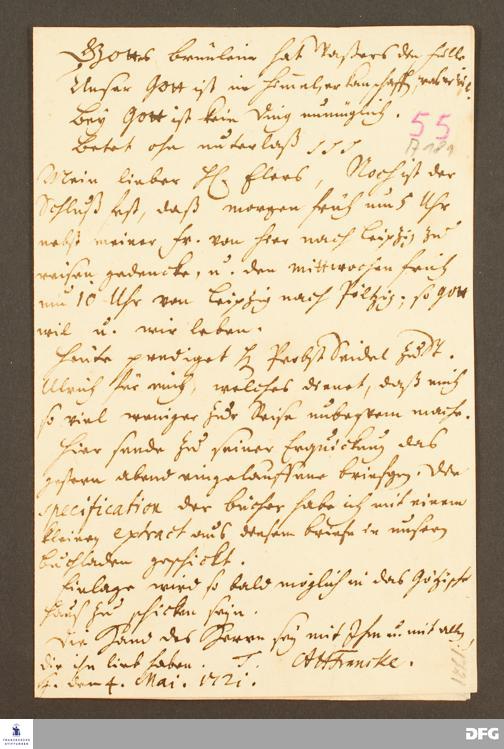 Gottes brünlein hat Waßers die fülle
Unser Gott ist im Himmel, er kan schaffen, was er wil.
Bey Gott ist kein Ding unmüglich.
Betet ohn unterlaß
55
Mein lieber H. Elers, Noch ist der
Schluß fest, daß morgen früh um 5 Uhr
nebst meiner Fr. von hier nach Leipzig zu
reisen gedencke, u. den Mittwochen früh
um 10 Uhr von Leipzig nach Pöltzig; so Gott
wil u. wir leben.
Heute prediget H. Probst Seidel zu St.
Ulrich für mich, welches dienet, daß mich
so viel weniger zur Reise unbeqvem mache.
Hier sende zu seiner Erquickung das
gestern abend eingelauffene briefgen. Die
specification der bücher habe ich mit einem
kleinen extract aus diesem briefe in unsern
buchladen geschickt.
Einlage wird so bald möglich in das Götzische
Hauß zu schicken seyn.
Die Hand des Herrn sey mit Ihm u. mit allen,
die ihn lieb haben. AHFrancke.
H. den 4. Mai. 1721.
1721
FRANCKESCHE STIFTUNGEN
DFG